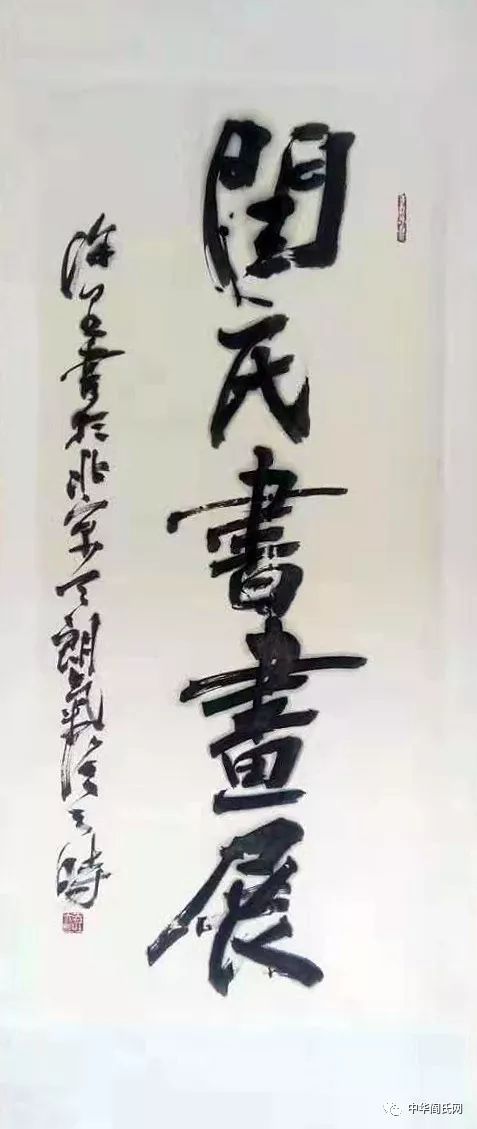 閆氏書畫展
徐里書於北京天朗氣清之時
中华阎氏网